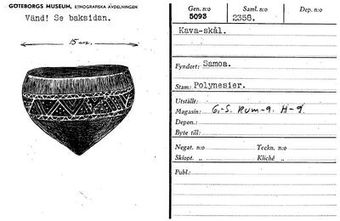 GÖTEBORGS MUSEUM, ETNOGRAFISKA AVDELNINGEN
Vänd! Se baksidan.
15 cm.
Gen. n:o
5093
Saml. n:o
2358.
Dep. n:o
Kava-skål.
Fyndort: Samoa.
Stam: Polynesier.
Utställ:
Magasin: G.-S. Rum-9. H-9
Depon.:
Byte till:
Negat. n:o
Teckn. n:o
Skiopt. „
Kliché „
Publ: